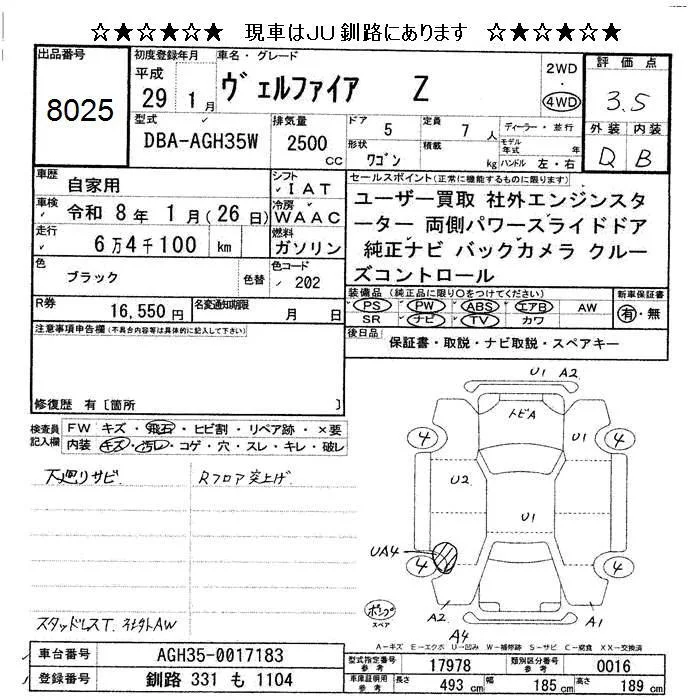 ☆★☆★☆★ 現車はJU釧路にあります ☆★☆★☆★
出品番号
8025
初度登録年月
平成
29 1月
車名・グレード
ヴェルファイア Z
2WD
4WD
評価点
3.5
外装 内装
D B
型式
DBA-AGH35W
排気量
2500
cc
ドア
5
定員
7人
ディーラー・並行
形状
ワゴン
積載
kg
モデル年式
年
ハンドル 左・右
車歴
自家用
シフト
IAT
車検
令和 8年 1月(26日)
冷房
WAAC
走行
6万4千100 km
燃料
ガソリン
色
ブラック
色替
色コード
202
R券
16,550円
名変通知期限
月 日
セールスポイント(正常に機能するものに限ります)
ユーザー買取 社外エンジンスタ
ーター 両側パワースライドドア
純正ナビ バックカメラ クルー
ズコントロール
装備品(純正品に限り○をつけてください)
PS PW ABS エアB AW
SR ナビ TV カワ
新車保証書
有・無
後日品
保証書・取説・ナビ取説・スペアキー
注意事項申告欄(不具合内容等は具体的に記入して下さい)
修復歴 有〔箇所 〕
検査員記入欄
FW キズ・飛石・ヒビ割・リペア跡・×要
内装 キズ・汚レ・コゲ・穴・スレ・キレ・破レ
下廻りサビ
Rフロア突上げ
スタッドレスT. 社外AW
U1 A2
トビA
4
4
U1
U2
U1
UA4
4
4
ポンプ
スペア
A2
A4
A1
A-キズ E-エクボ U-凹み W-補修跡 S-サビ C-腐食 XX-交換済
車台番号
AGH35-0017183
登録番号
釧路 331 も 1104
型式指定番号
参考
17978
類別区分番号
参考
0016
車庫証明用
参考
長さ
493 cm
幅
185 cm
高さ
189 cm